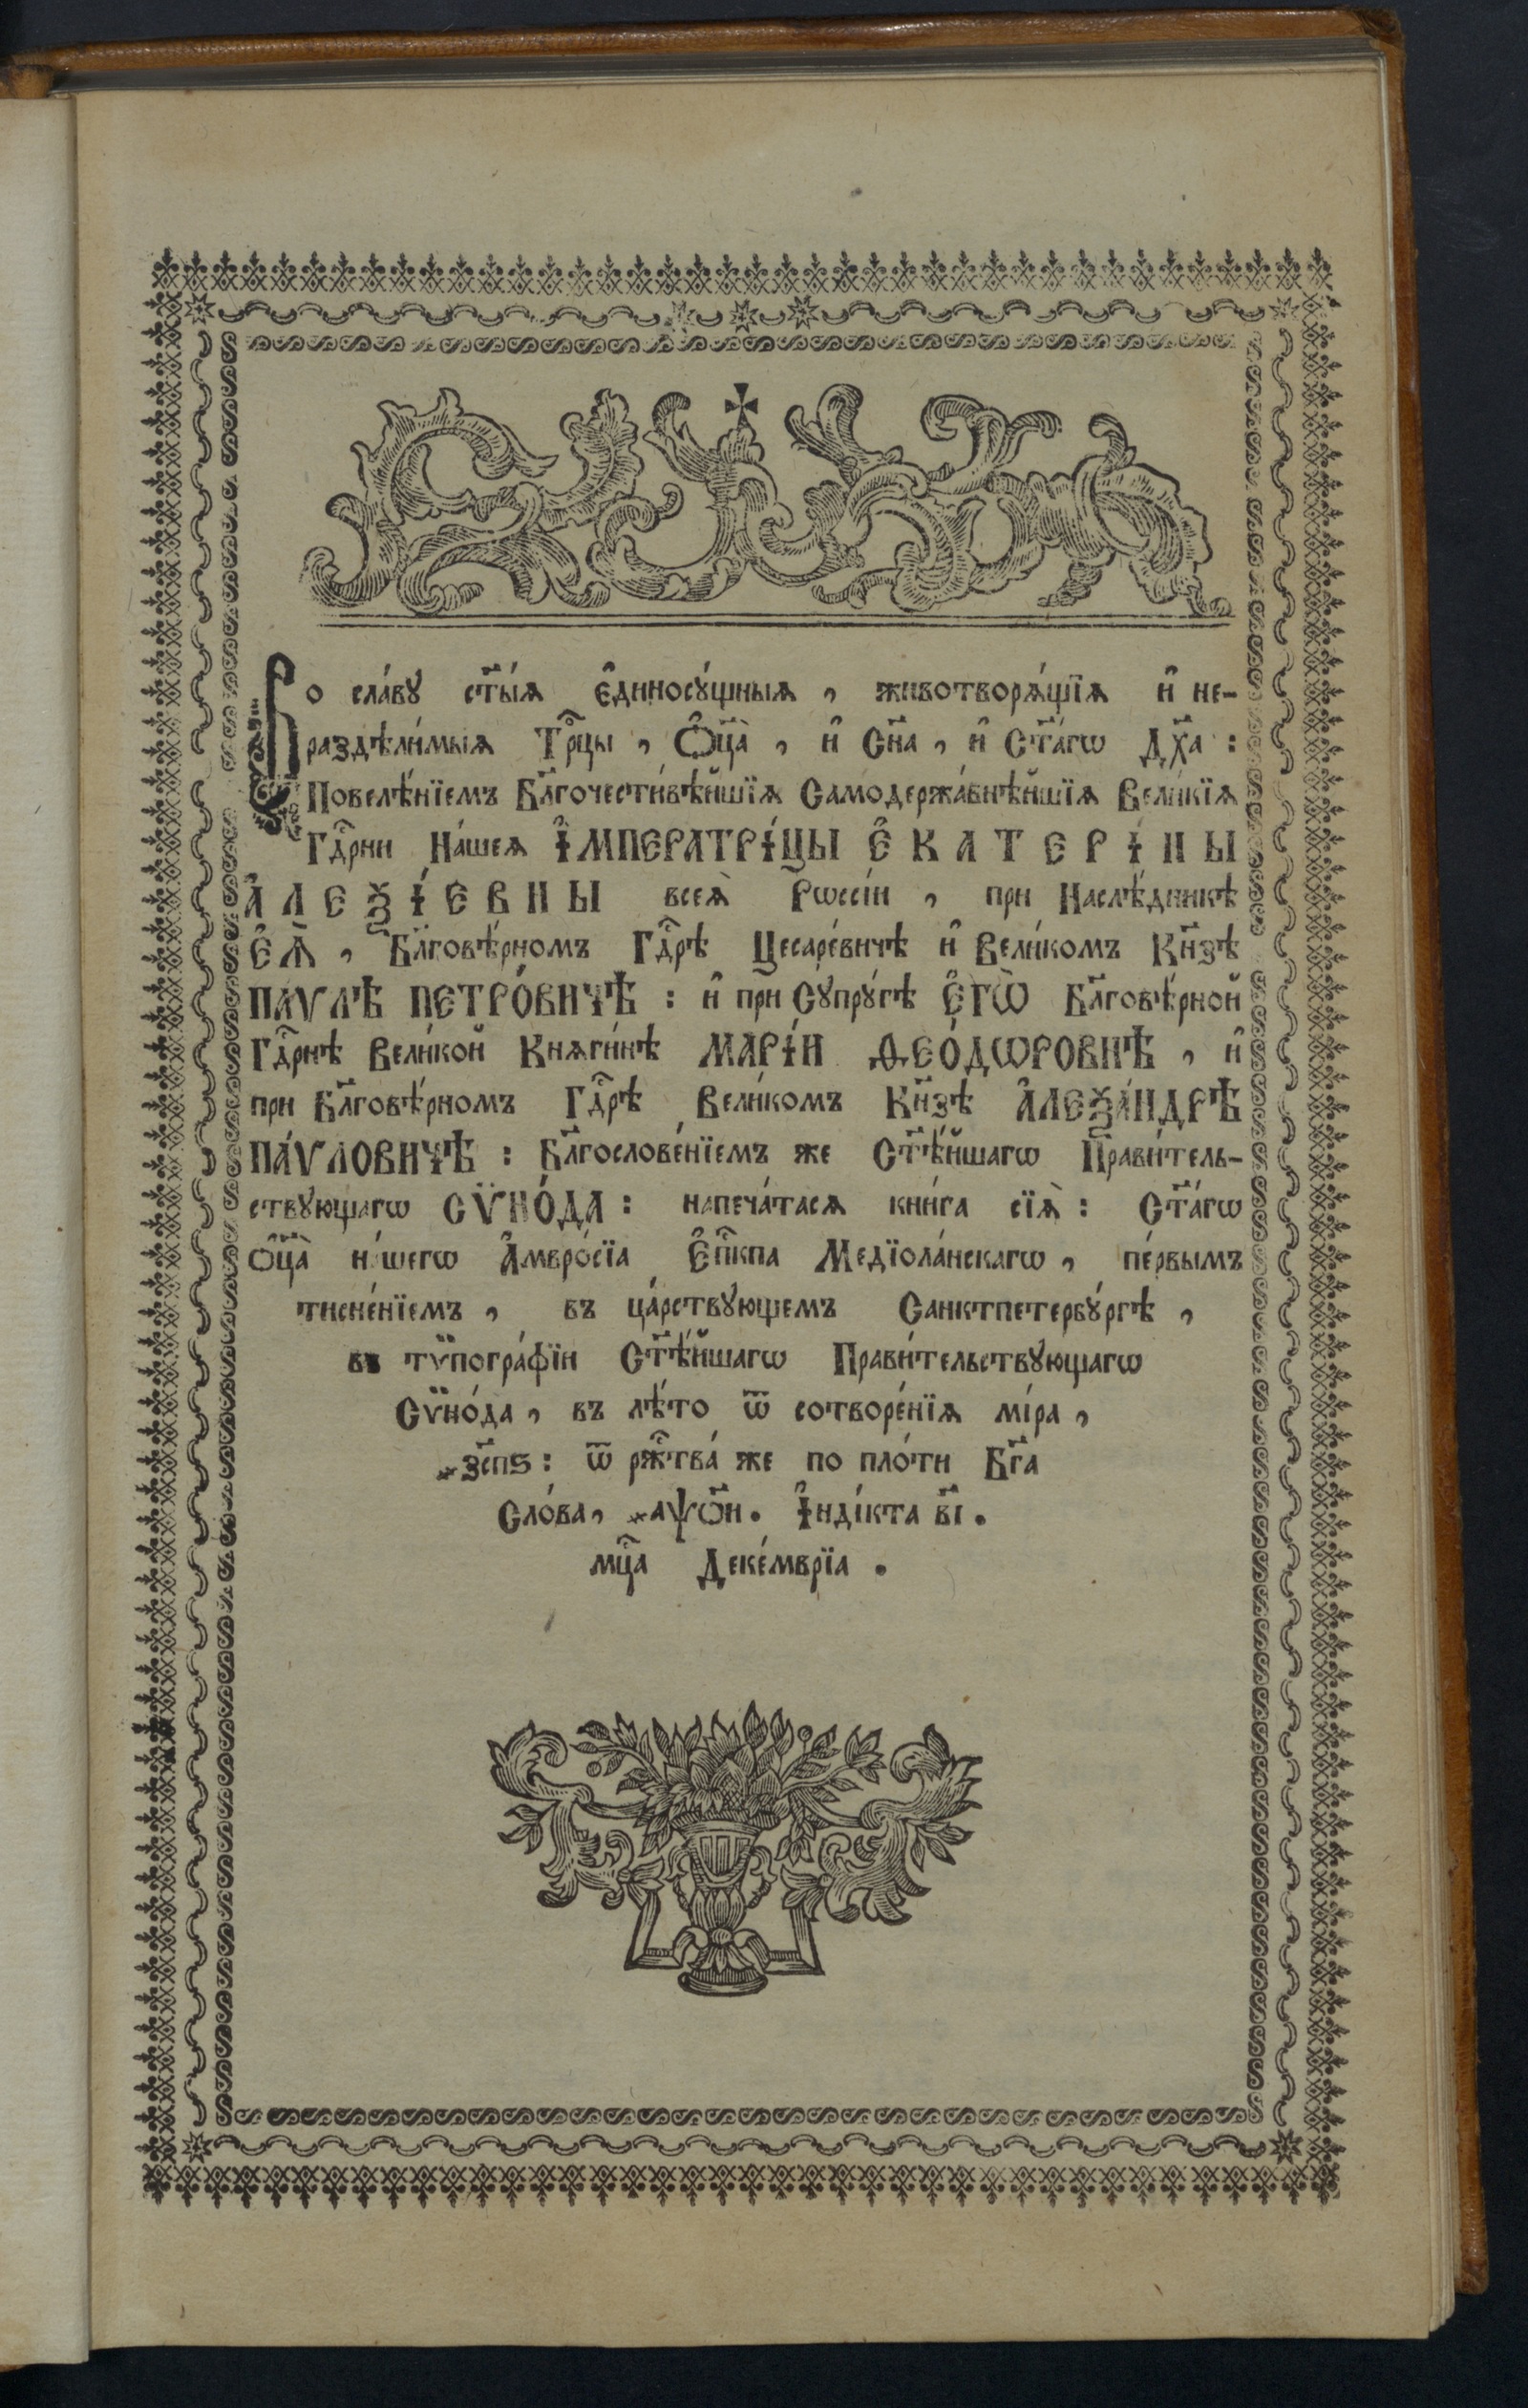 Во сла́вꙋ ст҃ы́ѧ є҆диносꙋ́щныѧ , животворѧ́щїѧ и҆ не-
раздѣли́мыѧ Трⷪ҇цы , Ѻ҆ц҃а̀ , и҆ Сн҃а , и҆ Ст҃а́гѡ Дх҃а :
Повелѣ́нїемъ Бл҃гочести́вѣйшїѧ Самодержа́внѣйшїѧ Вели́кїѧ
Гдⷭ҇рни На́шеѧ І҆МПЕРАТРІ́ЦЫ Є҆КАТЕРІ́НЫ
А҆ЛЕѮІ́ЕВНЫ всеѧ̀ Рѡссі́и , при Наслѣ́дникѣ
Є҆Ѧ̀ , Бл҃говѣ́рномъ Гдⷭ҇рѣ Цесаре́вичѣ и҆ Вели́комъ Кн҃зѣ
ПАѴЛѢ ПЕТРО́ВИЧѢ : и҆ при Сꙋпрꙋ́гѣ Є҆ГѠ̀ Бл҃говѣ́рной
Гдⷭ҇рнѣ Вели́кой Кнѧги́нѣ МАРІ́И ѲЕО́ДѠРОВНѢ , и҆
при Бл҃говѣ́рномъ Гдⷭ҇рѣ Вели́комъ Кн҃зѣ А҆ЛЕѮА́НДРѢ
ПА́ѴЛОВИЧѢ : Бл҃гослове́нїемъ же Ст҃ѣ́йшагѡ Прави́тель-
ствꙋющагѡ СѶНО́ДА : напеча́тасѧ кни́га сїѧ̀ : Ст҃а́гѡ
Ѻ҆ц҃а̀ на́шегѡ А҆мвро́сїа Є҆пⷭ҇кпа Медїола́нскагѡ , пе́рвымъ
тисне́нїемъ , въ ца́рствꙋющемъ Санктпетербꙋ́ргѣ ,
въ тѷпогра́фїи Ст҃ѣ́йшагѡ Прави́тельствꙋющагѡ
Сѷно́да , въ лѣ́то ѿ сотворе́нїѧ мі́ра ,
҂зс҃пѕ : ѿ ржⷭ҇тва́ же по пло́ти Бг҃а
Сло́ва , ҂аѱѻ҃и . І҆нді́кта в҃і .
мцⷭ҇а Деке́мврїа .